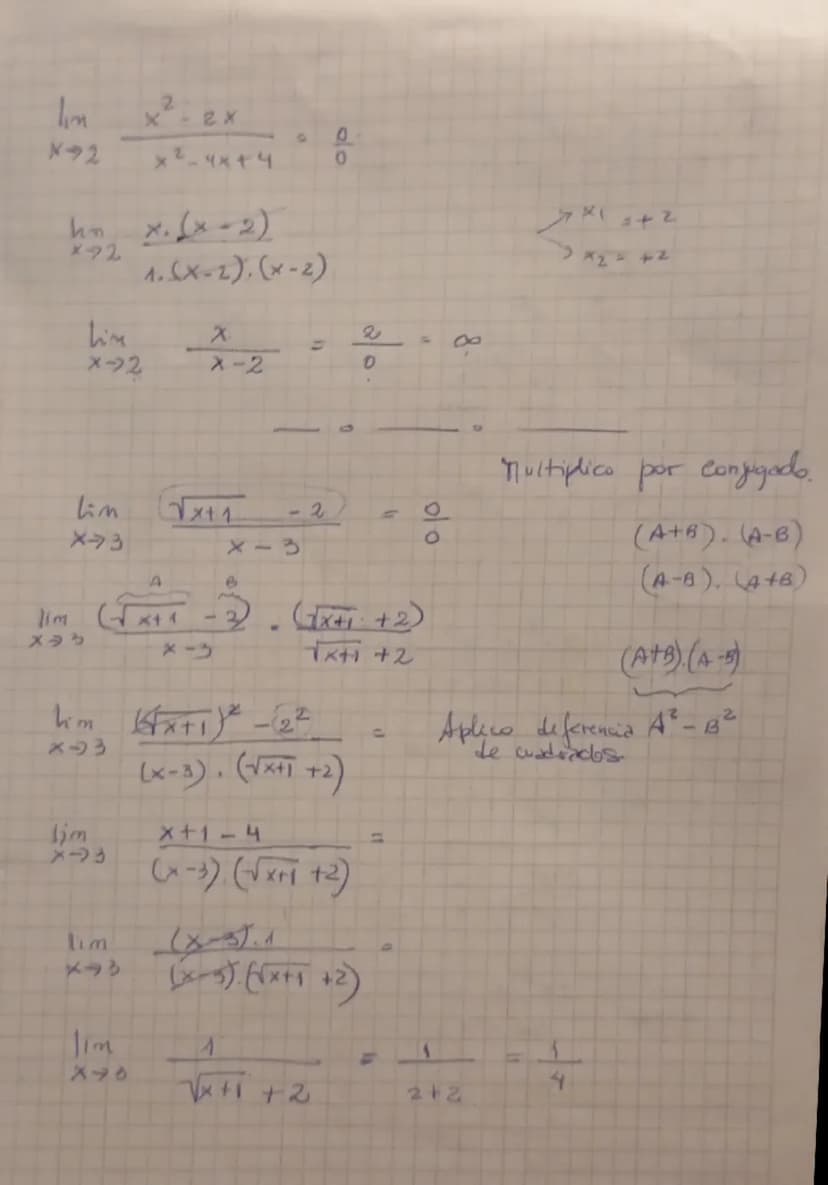 lim x→2 (x² - 2x)/(x² - 4x + 4) = 0/0
lim x→2 x.(x-2)/1.(x-2).(x-2) → x₁ = +2
→ x₂ = +2
lim x→2 x/(x-2) = 2/0 = ∞
Multiplico por conjugado.
lim x→3 (√(x+1) - 2)/(x-3) = 0/0 (A+B).(A-B)
(A-B).(A+B)
A B
lim x→3 (√(x+1) - 2)/(x-3) . (√(x+1) + 2)/(√(x+1) + 2) (A+B).(A-B)
lim x→3 ((√(x+1))² - 2²)/((x-3).(√(x+1) + 2)) = Aplico diferencia A² - B²
de cuadrados
lim x→3 (x+1-4)/((x-3).(√(x+1) + 2)) =
lim x→3 (x-3).1/((x-3).(√(x+1) + 2)) =
lim x→3 1/(√(x+1) + 2) = 1/(2+2) = 1/4